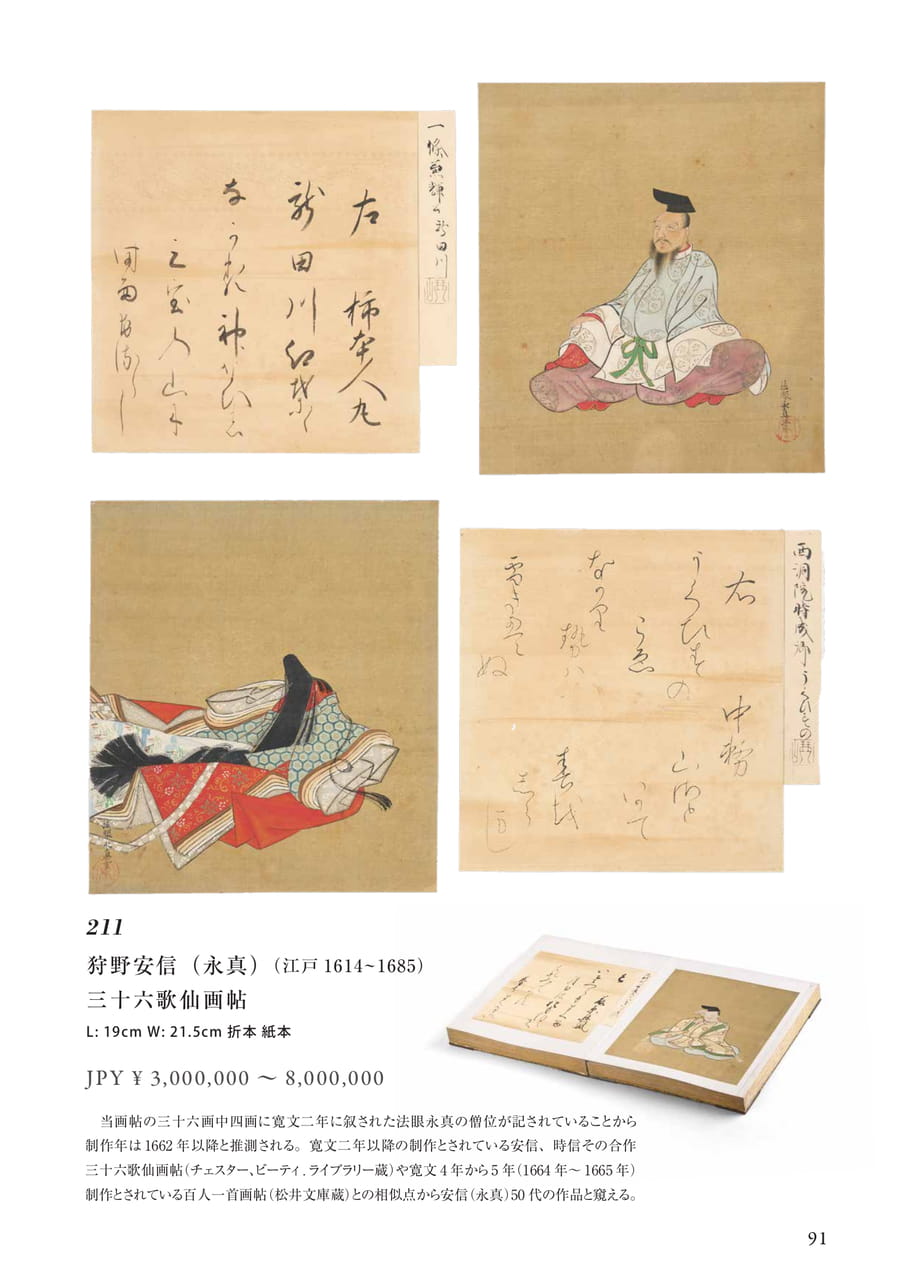 一條兼輝公 龍田川
左 柿本人丸
龍田川紅葉
神なひの
山に
時雨ふるらし
法眼永真筆
西洞院時成卿 うくひすの
右 中務
うくひすの
こゑ
なかり
勢ハ
雪きえ
ぬ
山里
いかて
春を
しら
まし
法眼永真筆
211
狩野安信（永真）（江戸 1614~1685）
三十六歌仙画帖
L: 19cm W: 21.5cm 折本 紙本
JPY ¥ 3,000,000 ～ 8,000,000
当画帖の三十六画中四画に寛文二年に叙された法眼永真の僧位が記されていることから
制作年は1662 年以降と推測される。寛文二年以降の制作とされている安信、時信その合作
三十六歌仙画帖（チェスター、ビーティ . ライブラリー蔵）や寛文 4 年から 5 年（1664 年～ 1665 年）
制作とされている百人一首画帖（松井文庫蔵）との相似点から安信（永真）50 代の作品と窺える。
91